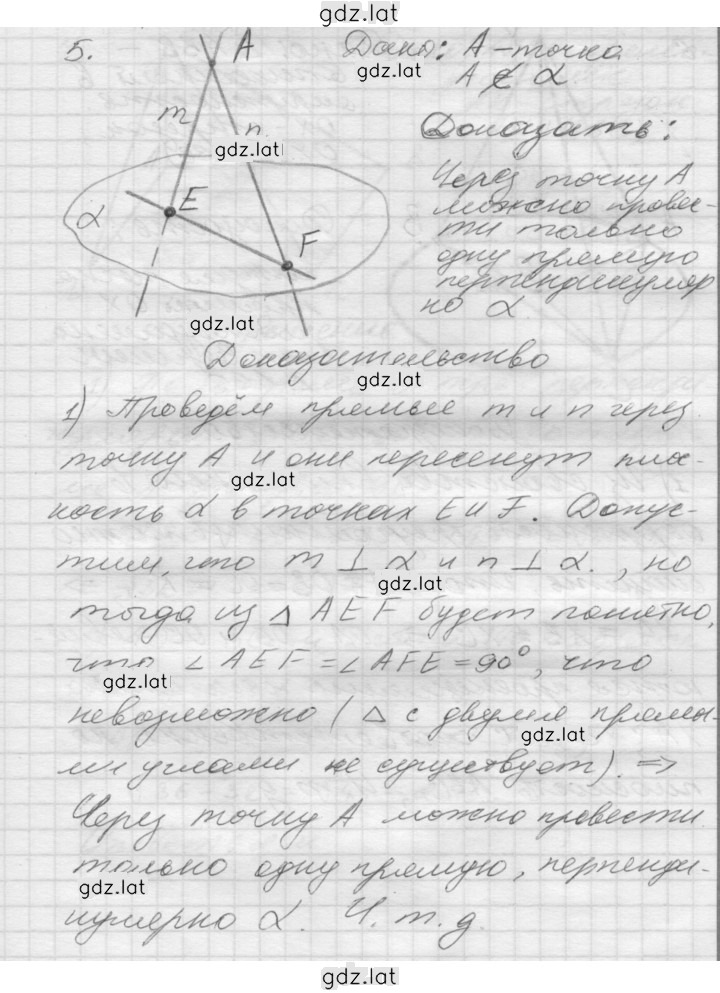 gdz.lat
5.
A
Дано: A - точка
gdz.lat
A ⊄ α
m
n
gdz.lat
Доказать:
Через точку A
можно провес-
ти только
одну прямую
перпендикуляр
но α.
α
E
F
gdz.lat
Доказательство
gdz.lat
1) Проведём прямые m и n через
точку A и они пересекут плос-
gdz.lat
кость α в точках E и F. Допус-
тим, что m ⊥ α и n ⊥ α., но
gdz.lat
тогда из △ AEF будет понятно,
что ∠ AEF = ∠ AFE = 90°, что
gdz.lat
невозможно (△ с двумя прямы-
gdz.lat
ми углами не существует). ⇒
Через точку A можно провести
только одну прямую, перпенди-
gdz.lat
кулярно α. Ч.т.д.
gdz.lat